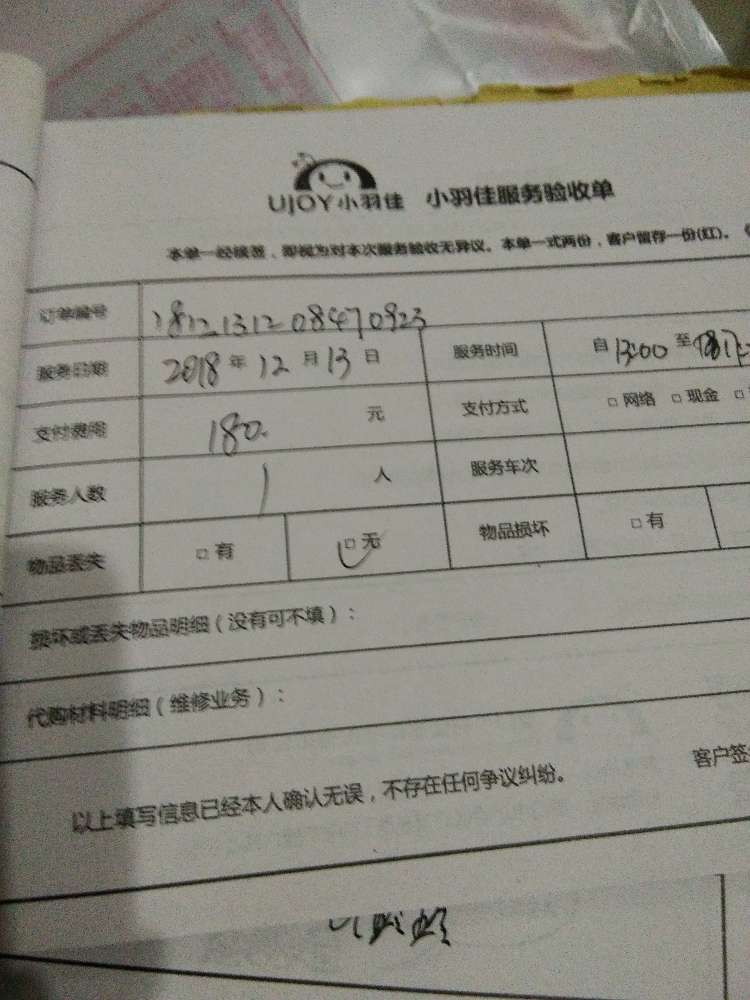 UJOY小羽佳 小羽佳服务验收单
本单一经接签，即视为对本次服务验收无异议。本单一式两份，客户留存一份(红)。
订单编号 1812131208470923
服务日期 2018 年 12 月 13 日 服务时间 自 13:00 至
支付费用 180. 元 支付方式 □ 网络 □ 现金 □
服务人数 1 人 服务车次
物品丢失 □ 有 □ 无 物品损坏 □ 有
损坏或丢失物品明细（没有可不填）：
代购材料明细（维修业务）：
以上填写信息已经本人确认无误，不存在任何争议纠纷。 客户签